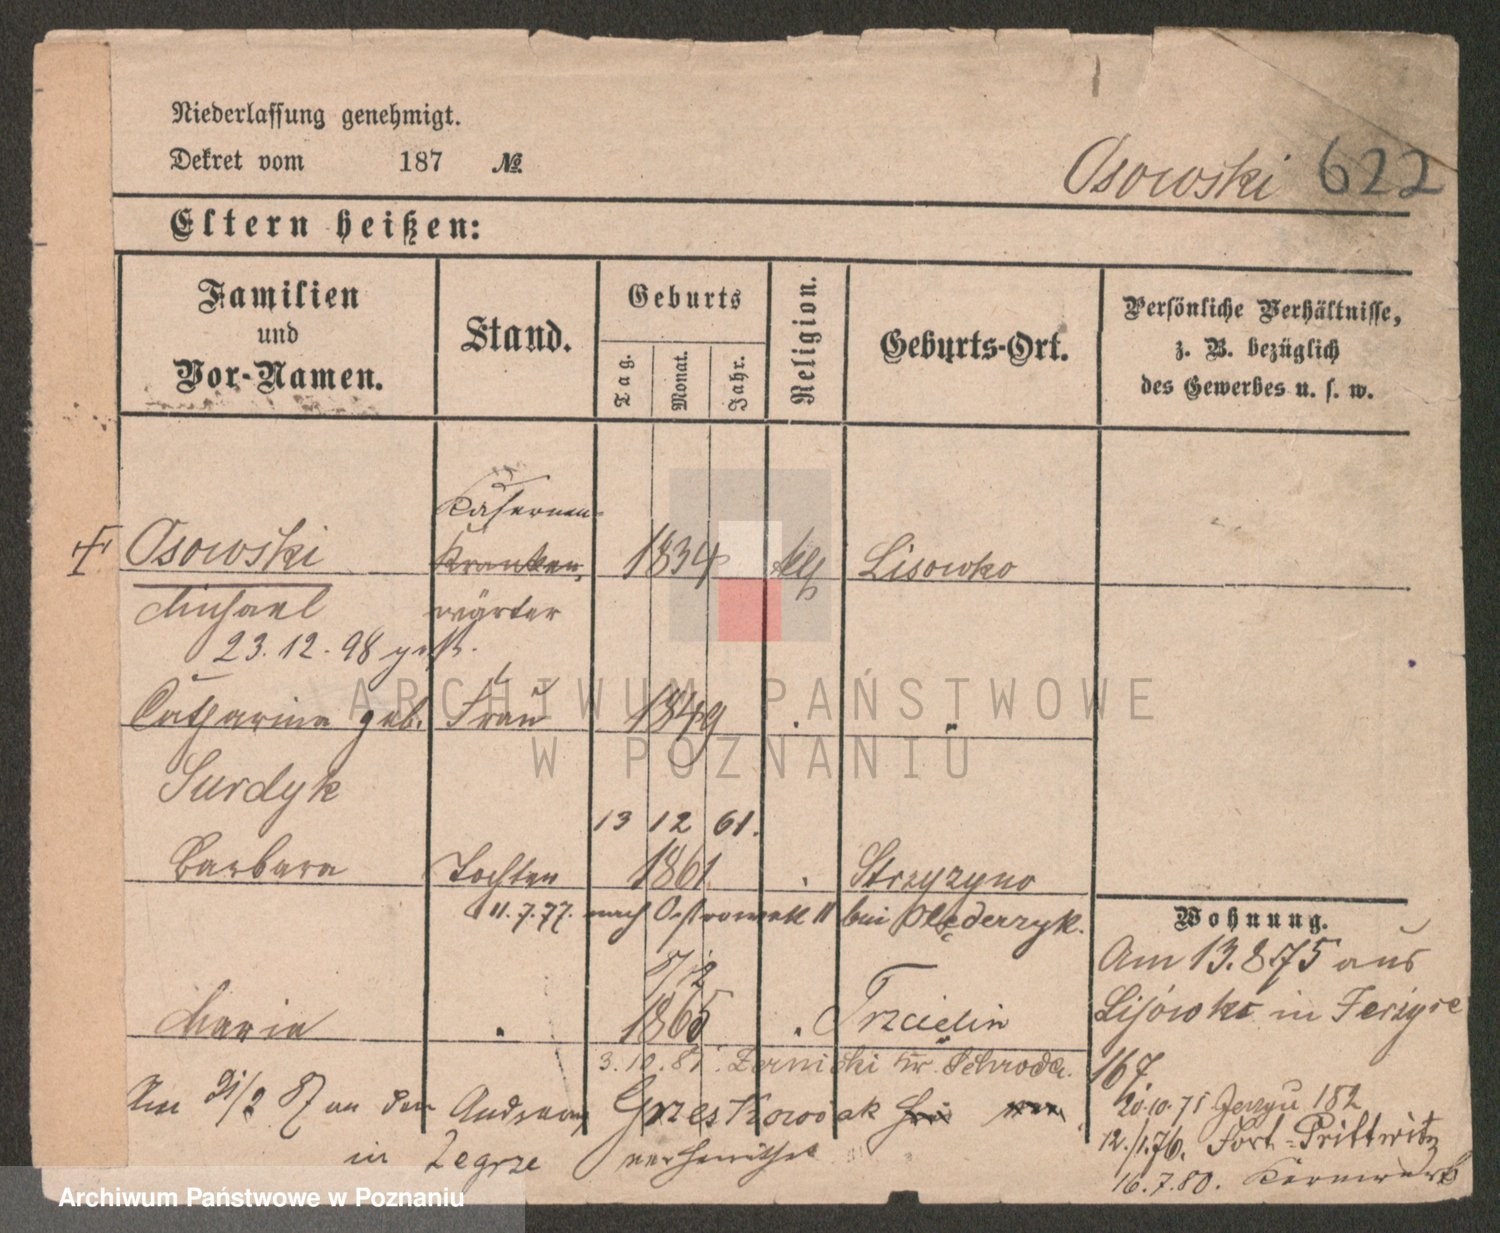 Niederlassung genehmigt.
Dekret vom 187 №
Osowski 622
Eltern heißen:
Familien und Vor-Namen.
Stand.
Geburts
Tag.
Monat.
Jahr.
Religion.
Geburts-Ort.
Persönliche Verhältnisse,
z. B. bezüglich
des Gewerbes u. s. w.
Kasernen-
Osowski Kranken- 1834 kth Lisowko
Michael wärter
23. 12. 98 gest.
Catharina geb. Frau 1849 "
Surdyk
13 12 61.
Barbara Tochter 1861 Strzyzyno
11. 7. 77. nach II bei
Wohnung.
Am 13.8.75 aus
in Jerzyce
167
Maria 1865
3. 10. 81. Zerniki Kr. Schroda.
20.10.75 Jerzyce 182
12./1.76. Fort-Prittwitz
16. 7. 80. Kernwerk
Am 21/2 87 an den Andreas Grzeskowiak
in Zegrze verheirathet
ARCHIWUM PAŃSTWOWE
W POZNANIU
Archiwum Państwowe w Poznaniu